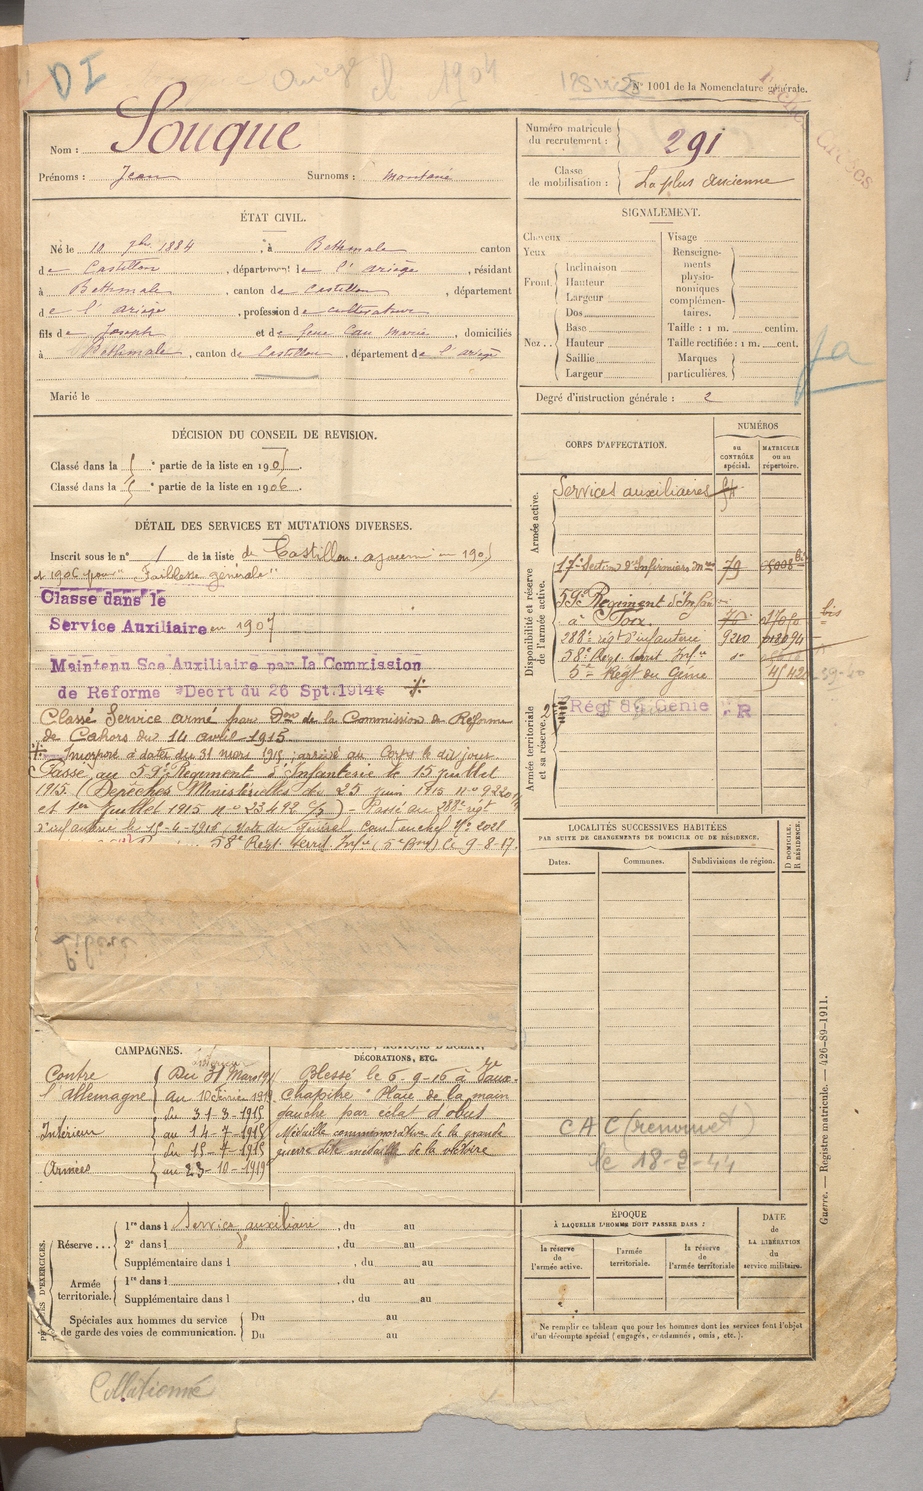 DI
Ariège
cl 1904
N° 1001 de la Nomenclature générale.
Nom : Souque
Prénoms : Jean Surnoms : Montané
Numéro matricule du recrutement : 291
Classe de mobilisation : La plus Ancienne
ÉTAT CIVIL.
Né le 10 9bre 1884, à Bethmale canton
de Castillon, département de l'Ariège, résidant
à Bethmale, canton de Castillon, département
de l'Ariège, profession de cultivateur
fils de Joseph et de feue Cau Marie, domiciliés
à Bethmale, canton de Castillon, département de l'Ariège
Marié le
SIGNALEMENT.
Cheveux
Yeux
Front.
Inclinaison
Hauteur
Largeur
Nez..
Dos
Base
Hauteur
Saillie
Largeur
Visage
Renseigne-
ments
physio-
nomiques
complémen-
taires.
Taille : 1 m. centim.
Taille rectifiée : 1 m. cent.
Marques
particulières.
Degré d'instruction générale : 2
DÉCISION DU CONSEIL DE REVISION.
Classé dans la 5e partie de la liste en 1905.
Classé dans la 5e partie de la liste en 1906.
DÉTAIL DES SERVICES ET MUTATIONS DIVERSES.
Inscrit sous le n° 1 de la liste de Castillon. ajourné en 1905
et 1906 pour "Faiblesse générale"
Classé dans le
Service Auxiliaire en 1907
Maintenu Sce Auxiliaire par la Commission
de Reforme *Decrt du 26 Spt.1914*
Classé Service armé par Don de la Commission de Réforme
de Cahors du 14 avril 1915
Incorporé à dater du 31 mars 1915, arrivé au Corps le dit jour
Passé au 59e Régiment d'Infanterie le 15 juillet
1915. (Dépêches Ministérielles du 25 juin 1915 no 9220
et 1er juillet 1915 no 23492) - Passé au 288e régt
d'infanterie le
58e Régt. territ. Infie le 9-8-17.
CORPS D'AFFECTATION.
NUMÉROS
au CONTRÔLE spécial.
MATRICULE ou au répertoire.
Armée active.
Services auxiliaires
Disponibilité et réserve de l'armée active.
17e Section d'Infirmiers 79
59e Régiment d'Infanterie
à Foix
288e régt d'infanterie 9210
58e Régt. territ. Infie
5e Régt du Génie
bis
Armée territoriale et sa réserve.
Régt du Génie R
LOCALITÉS SUCCESSIVES HABITÉES
PAR SUITE DE CHANGEMENTS DE DOMICILE OU DE RÉSIDENCE.
Dates. Communes. Subdivisions de région.
D DOMICILE,
R RÉSIDENCE.
CAC (renouvet)
le 18-2-44
Guerre. — Registre matricule. — 426-89-1911.
CAMPAGNES.
DÉCORATIONS, ETC.
Contre
l'Allemagne
Du 31 Mars 191
au 10 Février 1919
Intérieur
du 31-3-1915
au 14-7-1915
Armées
du 15-7-1915
au 23-10-1919
Blessé le 6-9-16 à Vaux-
Chapitre "Plaie de la main
gauche par éclat d'obus
Médaille commémorative de la grande
guerre dite médaille de la victoire
D'EXERCICES.
Réserve...
1re dans l Service auxiliaire, du au
2e dans l do, du au
Supplémentaire dans l, du au
Armée territoriale.
1re dans l, du au
Supplémentaire dans l, du au
Spéciales aux hommes du service
de garde des voies de communication.
Du au
Du au
ÉPOQUE
À LAQUELLE L'HOMME DOIT PASSER DANS :
la réserve de l'armée active.
l'armée territoriale.
la réserve de l'armée territoriale
DATE de LA LIBÉRATION du service militaire.
Ne remplir ce tableau que pour les hommes dont les services font l'objet
d'un décompte spécial (engagés, condamnés, omis, etc.).
Collationné